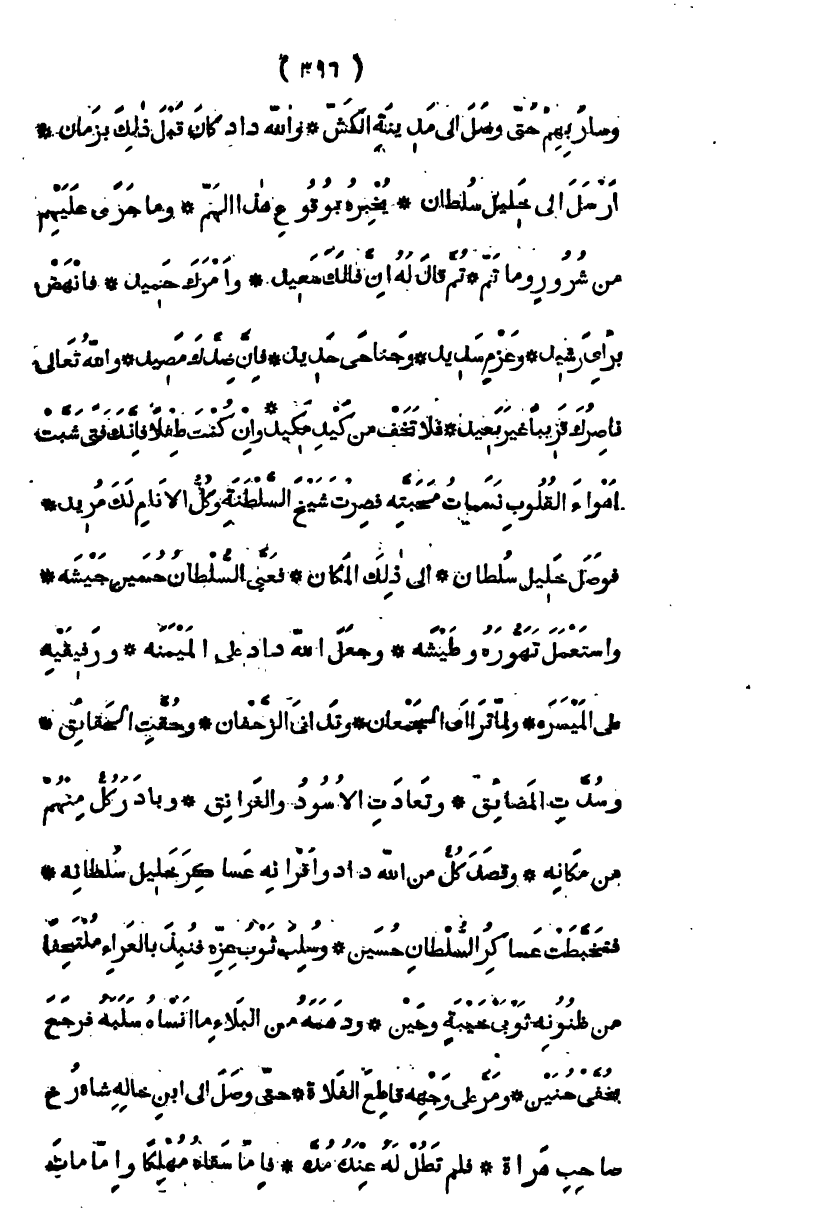 ( ٣٩٦ )
وسارَ بِهِمْ حَتّى وصَلَ الى مَدِينَةِ الكَشّ * واللّه داد كانَ قَبْلَ ذٰلِكَ بزَمان *
أرْسَلَ الى خَلِيل سُلطان * يُخْبِرُه بوُقُوعِ هٰذا الهَمّ * وما جَرَى عَليْهِم
من شُرُورٍ وما تَمّ * ثُمّ قالَ لهُ إنّ فالكَ سَعِيد * وأمْرَكَ حَمِيد * فانْهَضْ
برأىٍ رَشِيد * وعَزْمٍ سَدِيد * وجَناحَى حَدِيد * فإنّ ضِدّكَ مَصِيد * واللّه تَعالى
ناصِرُكَ قَرِيباً غيرَ بَعِيد * فلا تَخَفْ من كَيْدِ مَكِيد * وإنْ كُنْتَ طِفْلاً فإنّكَ فَتىً شَبّتْ
أهْواءَ القُلُوبِ نَسَماتُ مَحَبّتِه فصِرْتَ شَيْخَ السّلْطَنَةِ وكُلُّ الانامِ لكَ مُرِيد *
فوصَلَ خَلِيل سُلطان * الى ذٰلِكَ المَكان * فعَبّى السُّلْطانُ حُسَين جَيْشَه *
واستَعْمَلَ تَهَوّرَه وطَيْشَه * وجعَلَ اللّه داد على المَيْمَنَه * ورَفِيقَيْهِ
على المَيْسَرَه * ولمّا تَراأى الجَمْعان * وتَدانَى الزّحْفان * وحُقّتِ الحَقائِق *
وسُدّتِ المَضائِق * وتَعادَتِ الاُسُودُ والغَرانِق * وبادَرَ كُلٌّ مِنْهُمْ
مِن مَكانِه * وقصَدَ كُلٌّ من اللّه داد وأقْرانِه عَساكِرَ خَلِيل سُلطانِه *
فتَخَبّطَتْ عَساكِرُ السُّلْطانِ حُسَين * وسُلِبَ ثَوْبُ عِزِّه فنُبِذَ بالعَراءِ مُلْتَحِفًا
من ظُنُونِه ثَوْبَىْ خَيْبَةٍ وحَيْن * ودَهَمَهُ من البَلاءِ ما أنْساهُ سَلَبَهُ فرجَعَ
بخُفّى حُنَيْن * ومَرّ على وَجْهِه قاطِعَ الفَلاة * حتّى وصَلَ الى ابنِ خالِهِ شاه رُخ
صاحِبِ هَراة * فلم تَطُلْ لهُ عِنْدَهُ مُدّه * فإمّا سَقاهُ مُهْلِكًا وإمّا ماتَ